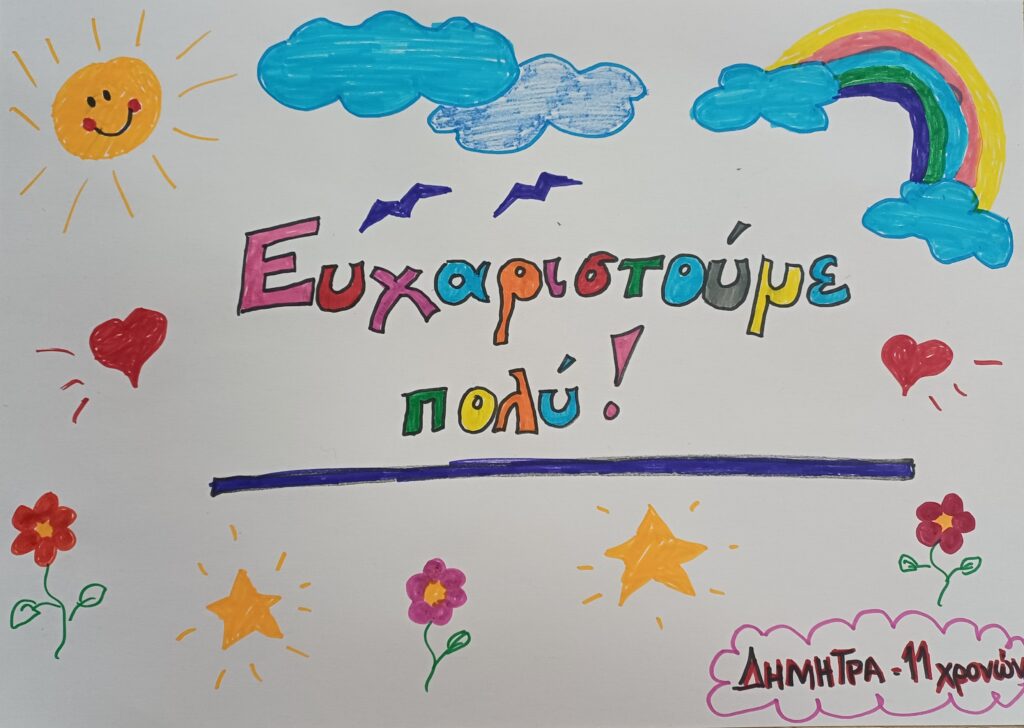 Ευχαριστούμε
πολύ!
ΔΗΜΗΤΡΑ - 11 χρονών